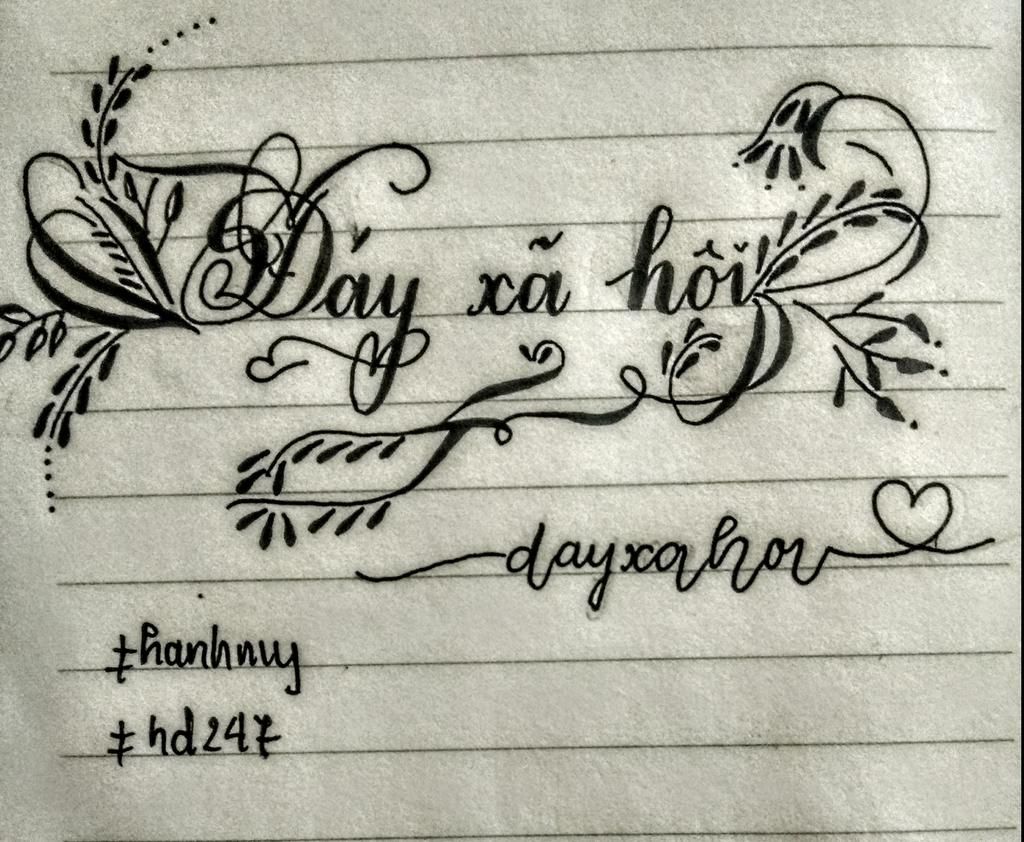 Đáy xã hội
dayxahoi
#hanhnuy
#hd247